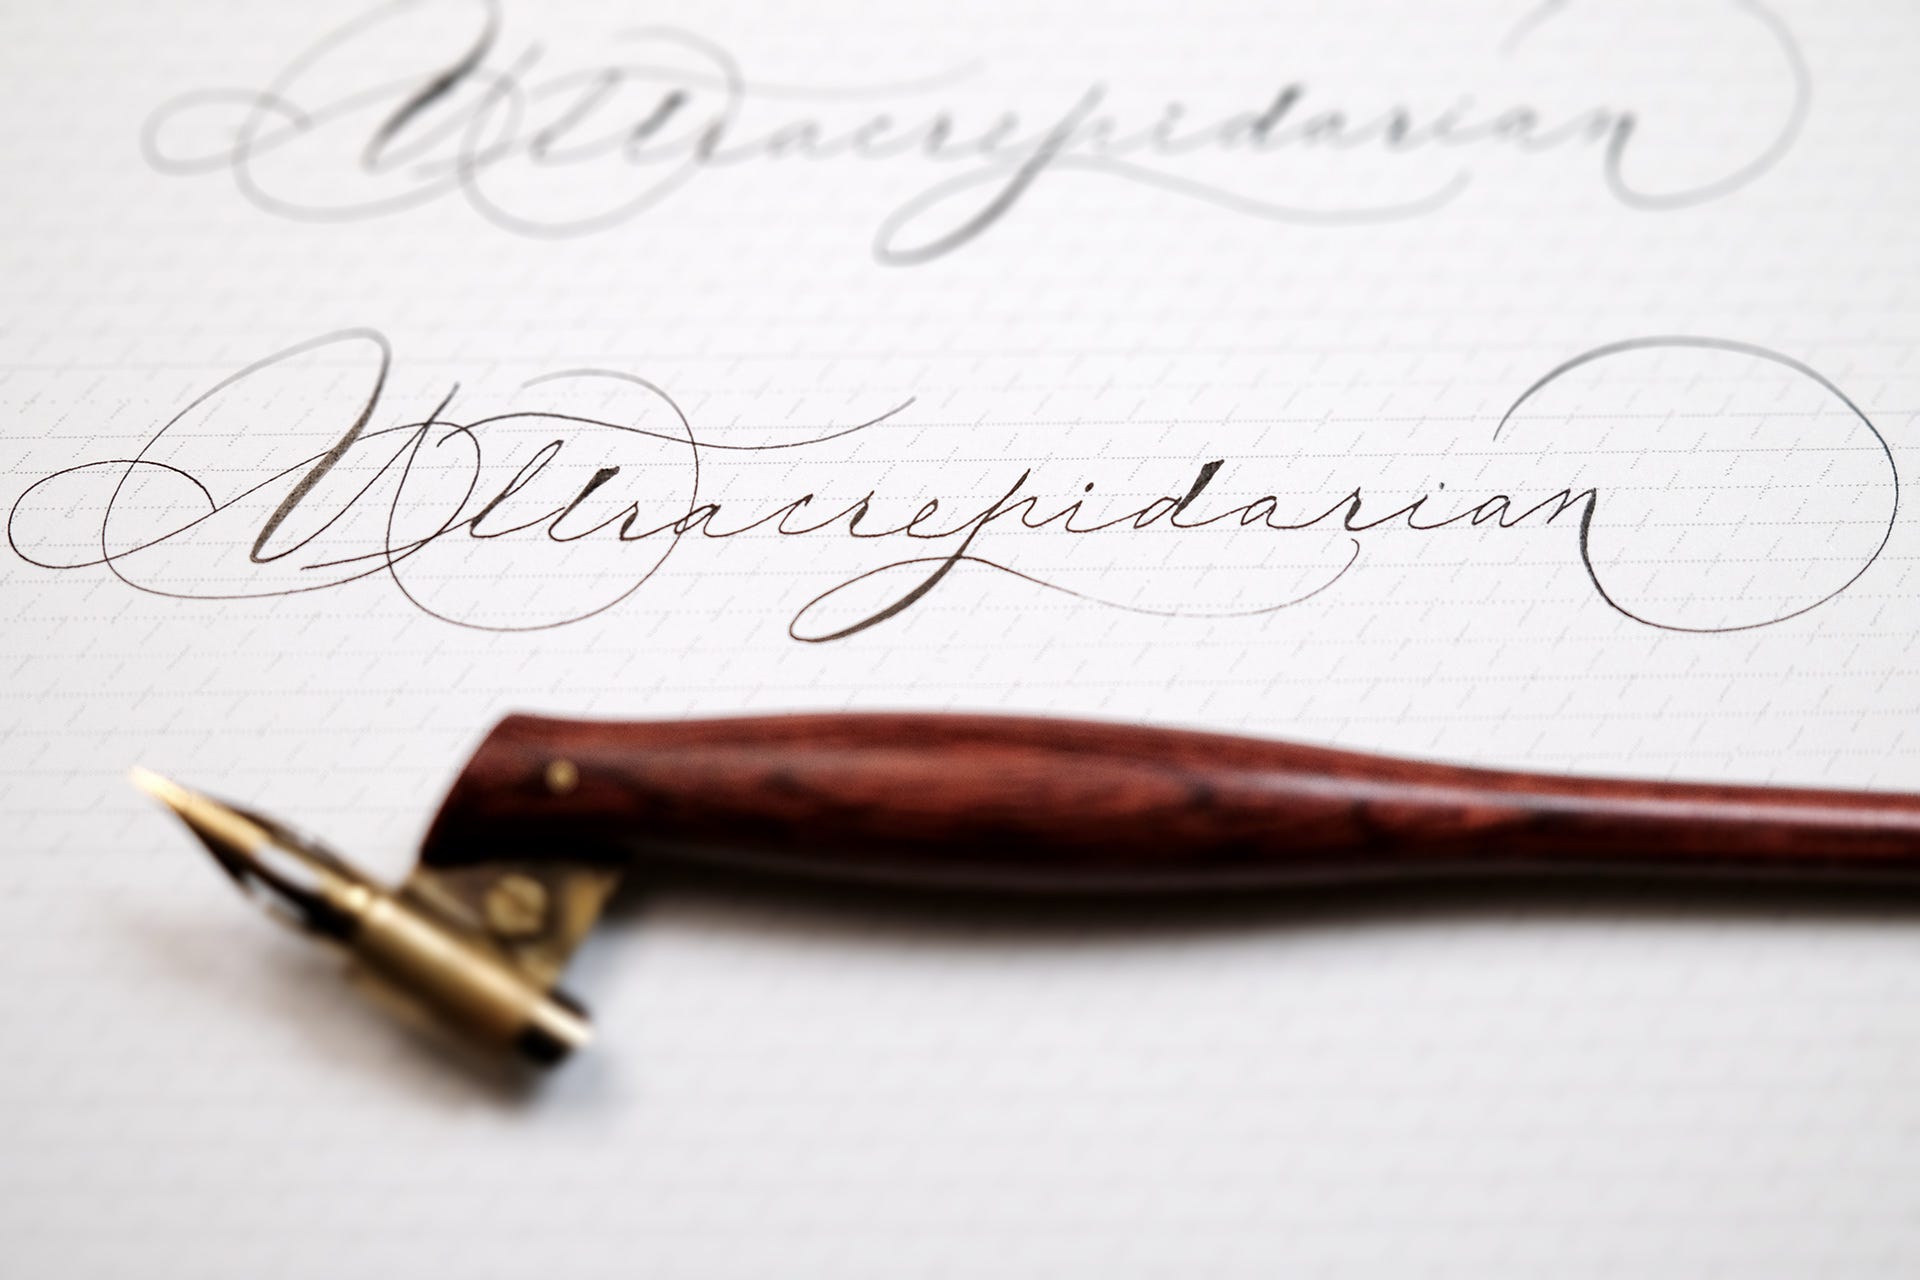 Ultracrepidarian
Ultracrepidarian